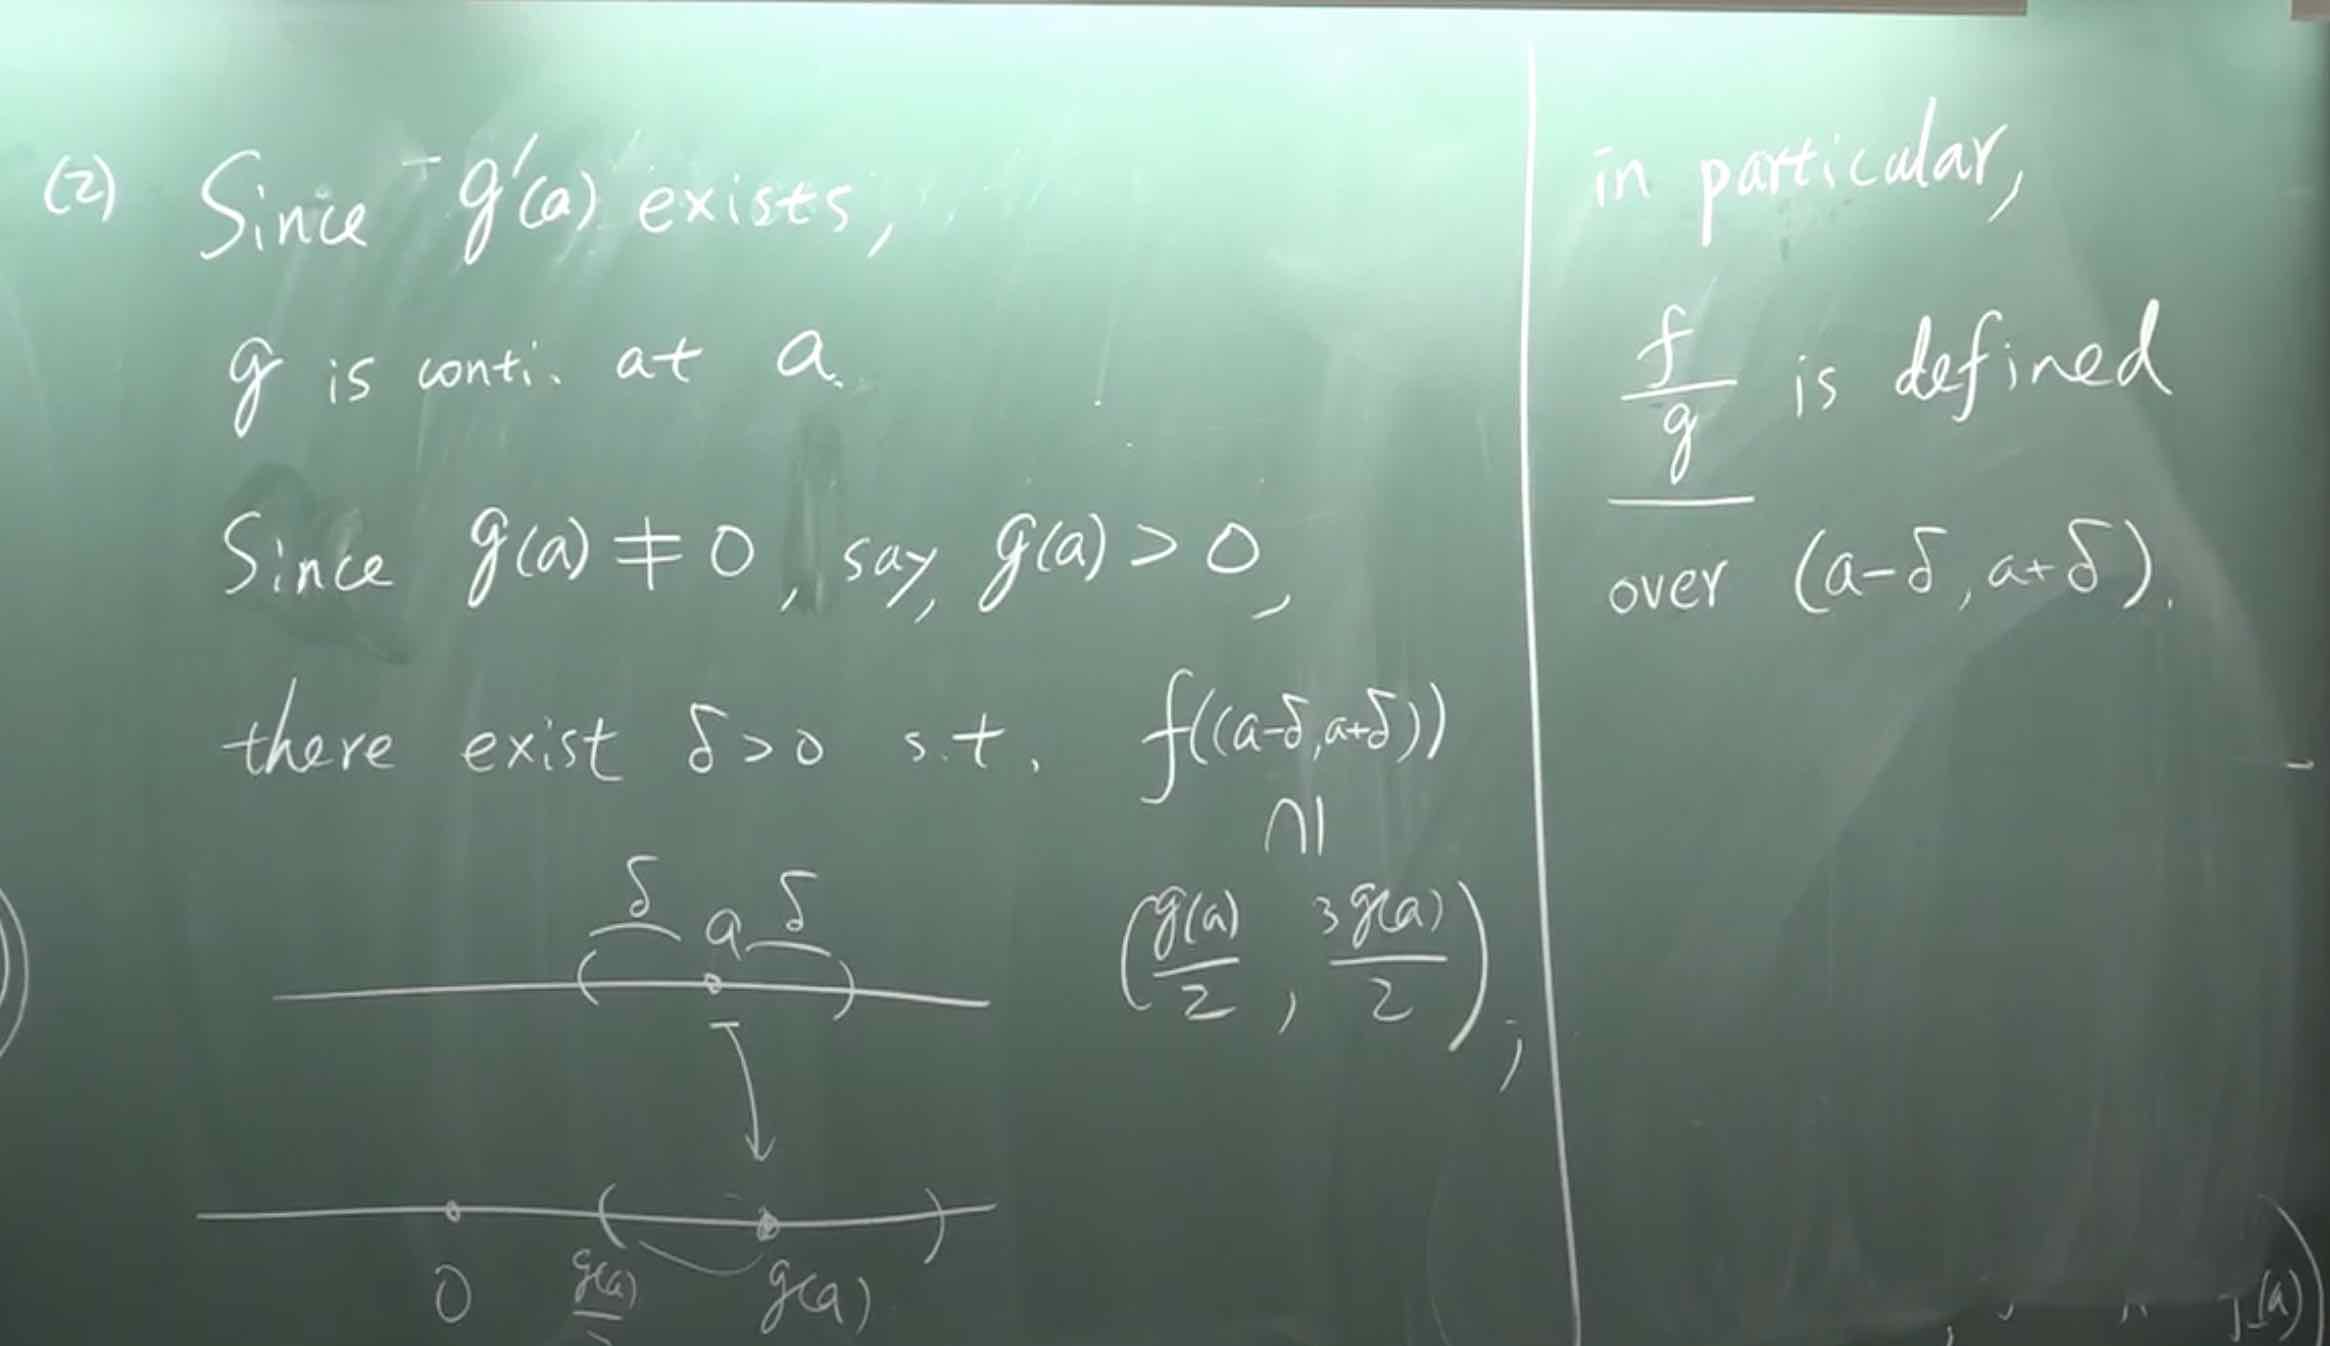 (2) Since g'(a) exists,
g is conti. at a.
Since g(a) ≠ 0, say, g(a) > 0,
there exist δ>0 s.t. f((a-δ,a+δ))
∩|
(g(a)/2, 3g(a)/2),
δ a δ
0 g(a)/2 g(a)
in particular,
f/g is defined
over (a-δ, a+δ).